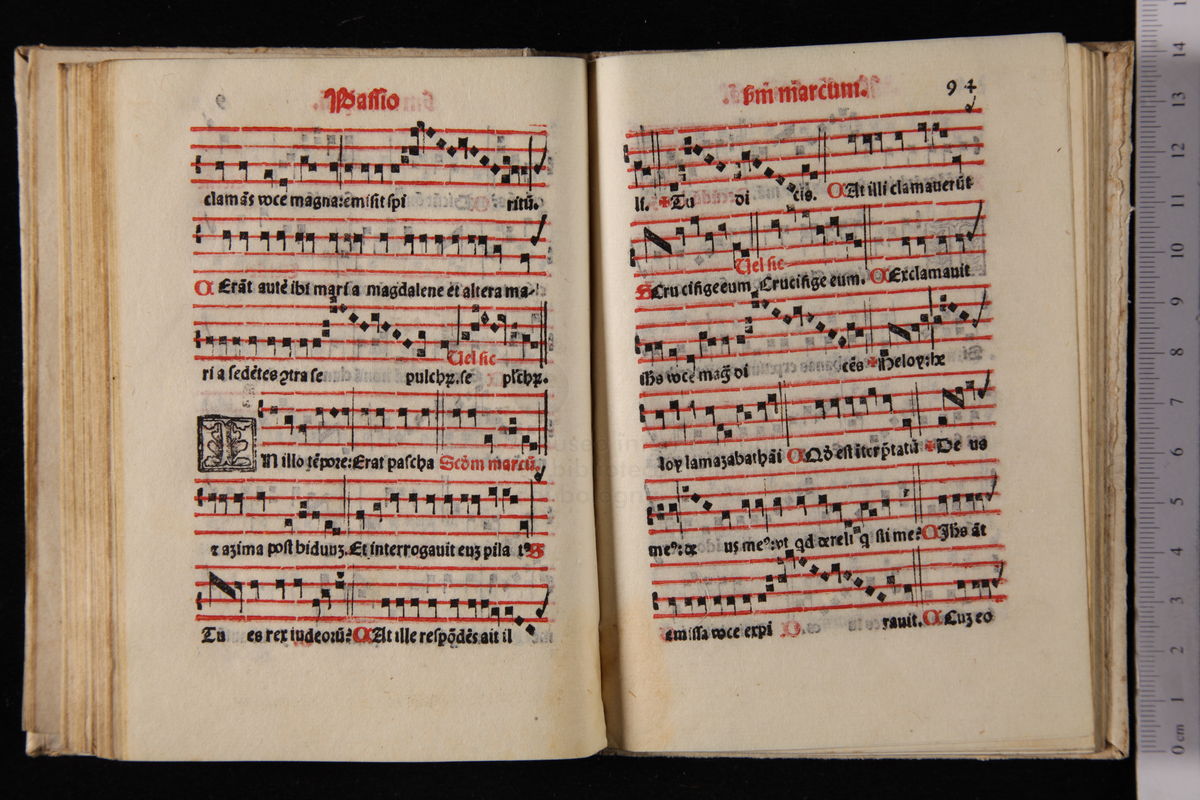 Passio
clamãs voce magna: emisit spi ritũ.
C Erãt autẽ ibi maria magdalene et altera ma-
Uel sic
ria sedẽtes ꝯtra se pulchꝝ. se plchꝝ.
IN illo tẽpore: Erat pascha Scðm marcũ
⁊ azima post biduuꝫ. Et interrogavit euꝫ pila tꝰ S
Tu es rex iudeorũ? C At ille respõdẽs ait il
.sm̃ marcum. 94
li. ✠ Tu di cis. C At illi clamauerũt
Uel sic
S Crucifige eum Crucifige eum. C Exclamauit
ihs voce mag̃ di cẽs ✠ Heloy: he
loy lamazabathãi C Qð est iterp̃tatũ ✠ De us
meꝰ: de us meꝰ: vt qd dereli q̃ sti me? C Jhs ãt
emissa voce expi rauit. C Cuꝫ eo
0 cm 1 2 3 4 5 6 7 8 9 10 11 12 13 14